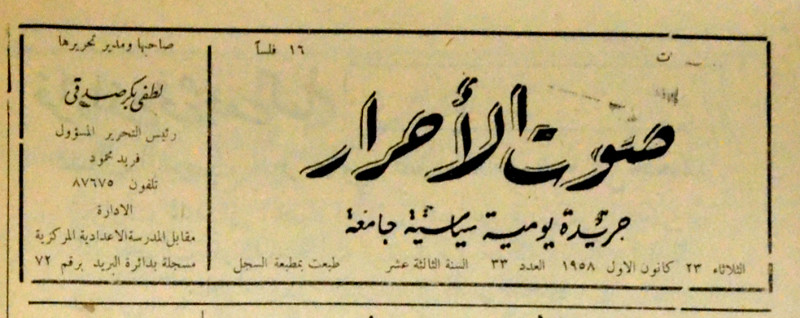 ١٦ فلساً
صوت الأحرار
جريدة يومية سياسية جامعة
الثلاثاء ٢٣ كانون الاول ١٩٥٨ العدد ٣٣ السنة الثالثة عشر طبعت بمطبعة السجل
صاحبها ومدير تحريرها
لطفي بكر صدقي
رئيس التحرير المسؤول
فريد محمود
تلفون ٨٧٦٧٥
الادارة
مقابل المدرسة الاعدادية المركزية
مسجلة بدائرة البريد برقم ٧٢